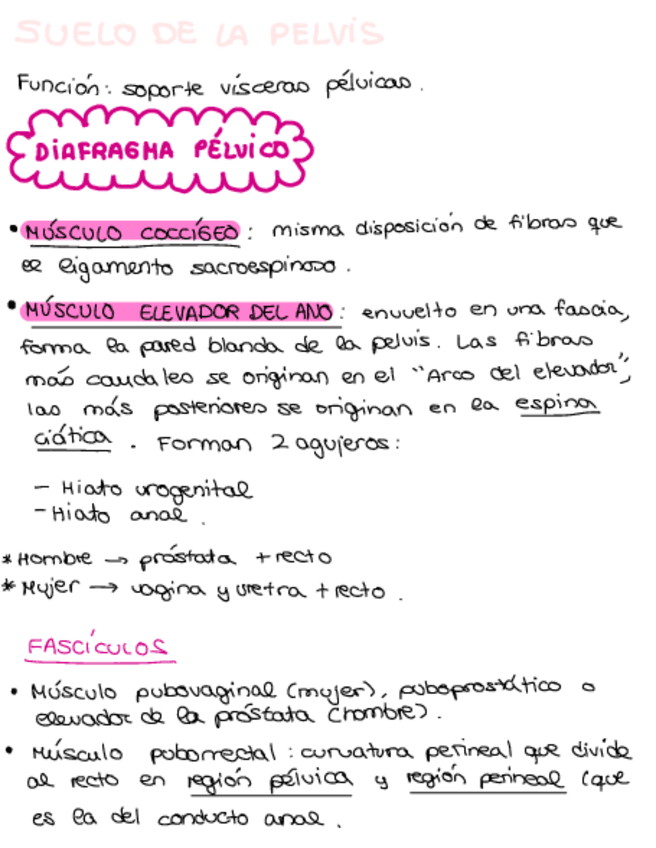 SUELO DE LA PELVIS
Función: soporte vísceras pélvicas.
DIAFRAGMA PÉLVICO
• MÚSCULO COCCÍGEO: misma disposición de fibras que
el ligamento sacroespinoso.
• MÚSCULO ELEVADOR DEL ANO: envuelto en una fascia,
forma la pared blanda de la pelvis. Las fibras
más caudales se originan en el "Arco del elevador",
las más posteriores se originan en la espina
ciática. Forman 2 agujeros:
- Hiato urogenital
- Hiato anal.
* Hombre → próstata + recto
* Mujer → vagina y uretra + recto.
FASCÍCULOS
• Músculo pubovaginal (mujer), puboprostático o
elevador de la próstata (hombre).
• Músculo puborrectal: curvatura perineal que divide
al recto en región pélvica y región perineal (que
es la del conducto anal.